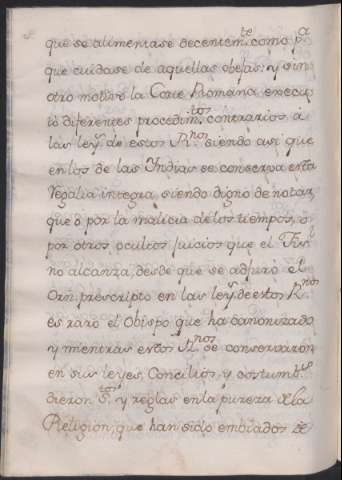 que se alimentase decentemte. como pa.
que cuidase de aquellas obejas: y sin
otro motivo la Corte Romana executó
diferentes procedimtos. contrarios á
las leys. de estos Rnos. siendo asi que
en los de las Indias se conserva esta
regalia integra, siendo digno de notar,
que ó por la malicia de los tiempos, ó
por otros ocultos juicios que el Fisl.
no alcanza, desde que se adjuró el
Orn. prescripto en las leys. de estos Rnos.
es raro el Obispo que ha canonizado,
y mientras estos Rnos. se conservaron
en sus leyes, Concilios, y costumbs.
dieron Stos. y reglas en la pureza de la
Religion, que han sido embiados de